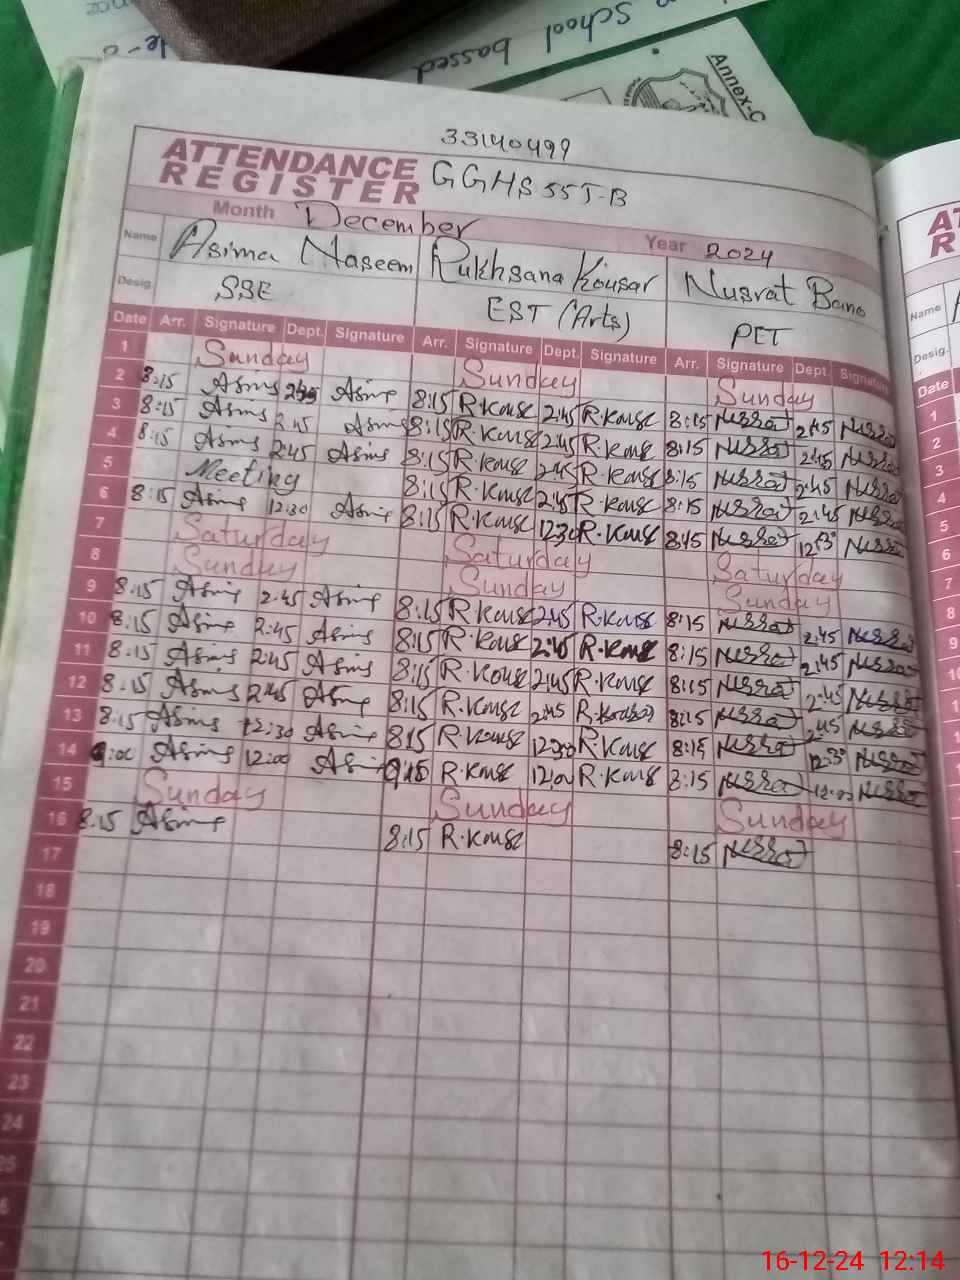 School bassed
Annex-C
33140499
ATTENDANCE
REGISTER
GGHS 55J-B
Month December Year 2024
Name Asima Naseem Rukhsana Kousar Nusrat Bano
Desig. SSE EST (Arts) PET
Date Arr. Signature Dept. Signature Arr. Signature Dept. Signature Arr. Signature Dept. Signature
1 Sunday Sunday Sunday
2 8:15 Asima 2:45 Asima 8:15 R.Kouse 2:45 R.Kouse 8:15 2:45
3 8:15 Asima 2:45 Asima 8:15 R.Kouse 2:45 R.Kouse 8:15 2:45
4 8:15 Asima 2:45 Asima 8:15 R.Kouse 2:45 R.Kouse 8:15 2:45
5 Meeting 8:15 R.Kouse 2:45 R.Kouse 8:15 2:45
6 8:15 Asima 12:30 Asima 8:15 R.Kouse 12:30 R.Kouse 8:15 12:30
7 Saturday Saturday Saturday
8 Sunday Sunday Sunday
9 8:15 Asima 2:45 Asima 8:15 R.Kouse 2:45 R.Kouse 8:15 2:45
10 8:15 Asima 2:45 Asima 8:15 R.Kouse 2:45 R.Kouse 8:15 2:45
11 8:15 Asima 2:45 Asima 8:15 R.Kouse 2:45 R.Kouse 8:15 2:45
12 8:15 Asima 2:45 Asima 8:15 R.Kouse 2:45 8:15 2:45
13 8:15 Asima 12:30 Asima 8:15 R.Kouse 12:30 R.Kouse 8:15 12:30
14 9:00 Asima 12:00 Asima R.Kouse 12:00 R.Kouse 8:15 12:00
15 Sunday Sunday Sunday
16 8:15 Asima 8:15 R.Kouse 8:15
17
18
19
20
21
22
23
24
Name
Desig.
Date
1
2
3
4
5
6
7
8
9
10
16-12-24 12:14